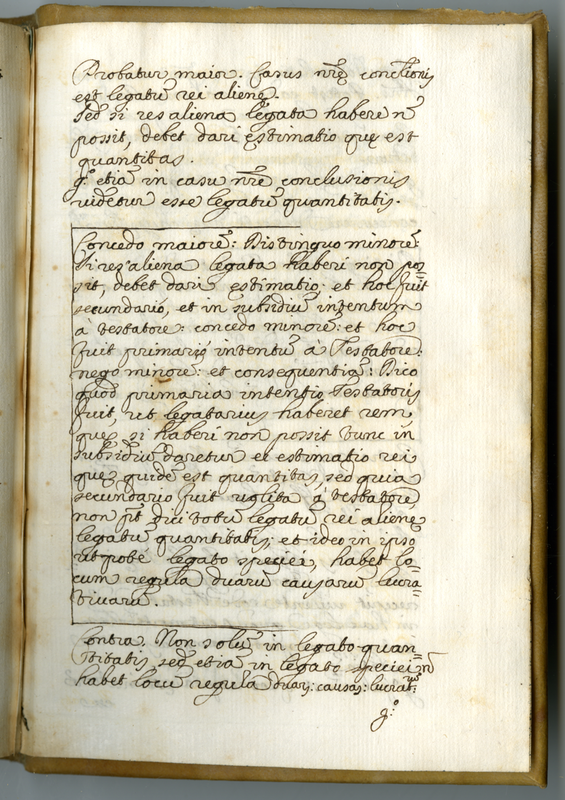 Probatur maior. Casus nr̃ę conclõnis
est legatũ rei alienę.
Sed si res aliena legata haberi nõ
possit, debet dari ęstimatio quę est
quantitas.
g.º etiã in casu nr̃ę conclusionis
uidetur esse legatũ quantitatis.
Concedo maiorẽ: Distinguo minorẽ
Si res aliena legata haberi non pos=
sit, debet dari ęstimatio, et hoc fuit
secundario, et in subsidiũ intentum
à testatore: concedo minorẽ: et hoc
fuit primariò intentũ à Testatore:
nego minorẽ: et consequentiã: Dico
quod primaria intentio Testatoris
fuit, ut legatarius haberet rem
quę si haberi non possit tunc in
subsidiũ daretur et estimatio rei
quę quidẽ est quantitas, sed quia
secundario fuit uolita à testatore,
non pt̃ dici totũ legatũ rei alienę
legatũ quantitatis; et ideo in ipso
ut potè legato speciei, habet lo=
cum regula duarũ causarũ lucra=
tiuarũ
Contra. Non solũ in legato quan=
titatis, sed etiã in legato speciei nõ
habet locũ regula duar: causar: lucrat:
g.º